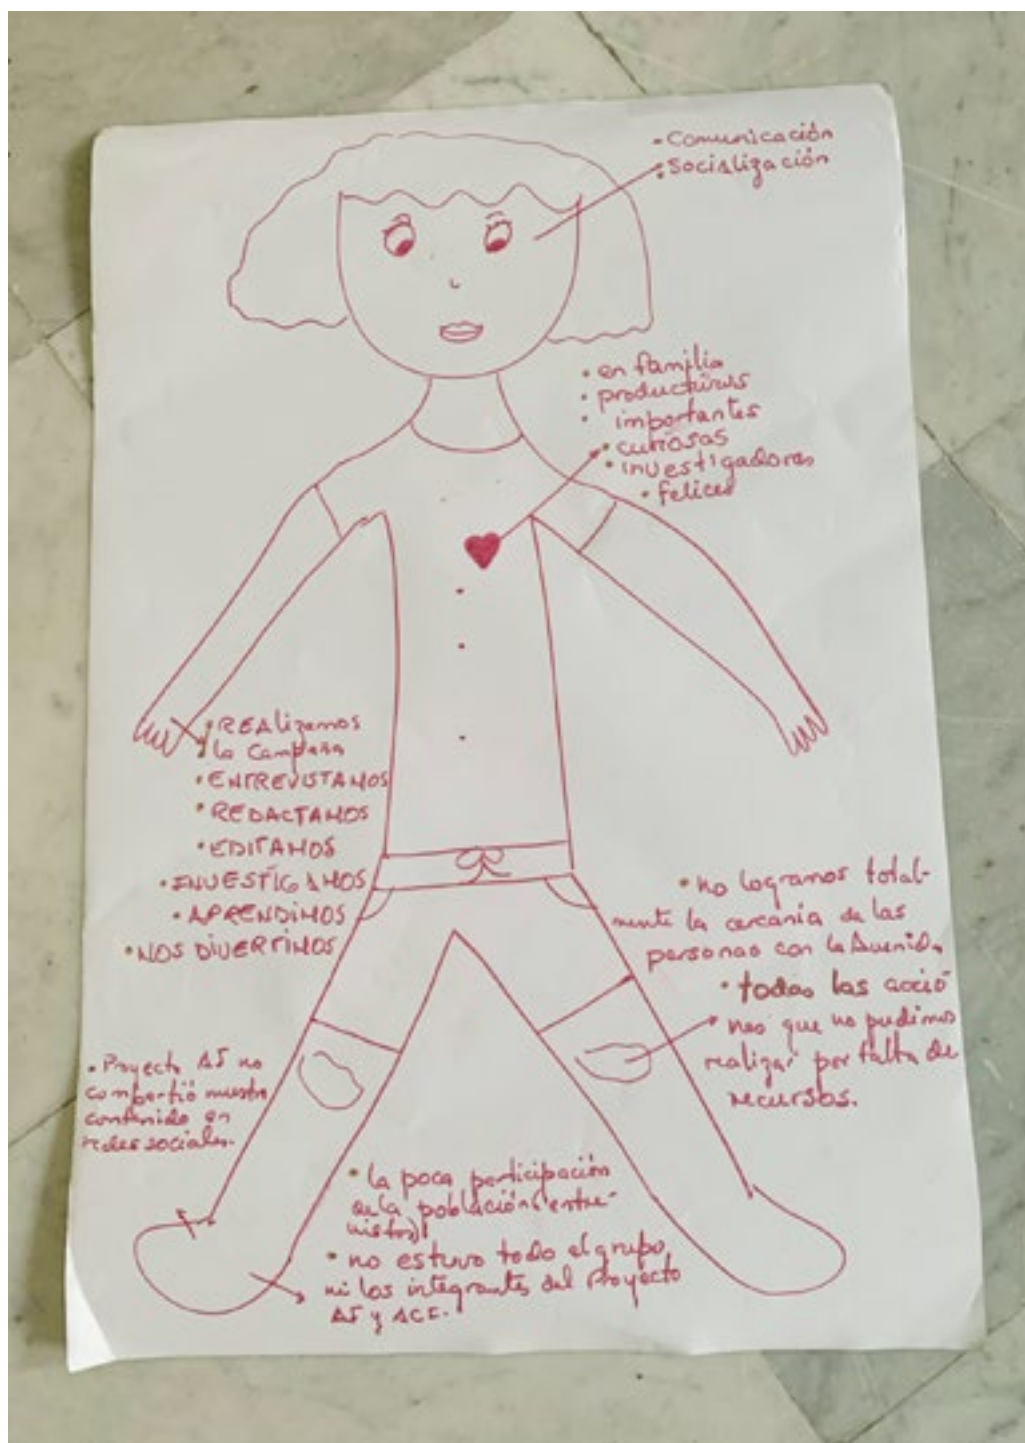 • Comunicación
• Socialización
• en familia
• productivas
• importantes
• curiosas
• investigadoras
• felices
• REALizamos
la Campaña
• ENTREVISTAMOS
• REDACTAMOS
• EDITAMOS
• INVESTIGAMOS
• APRENDIMOS
• NOS DIVERTIMOS
• no logramos total-
mente la cercanía de las
personas con la Avenida
• todas las accio
nes que no pudimos
realizar por falta de
recursos.
• Proyecto AI no
compartió nuestro
contenido en
redes sociales.
• la poca participación
de la población (entre-
vistas)
• no estuvo todo el grupo,
ni los integrantes del Proyecto
AI y ACE.